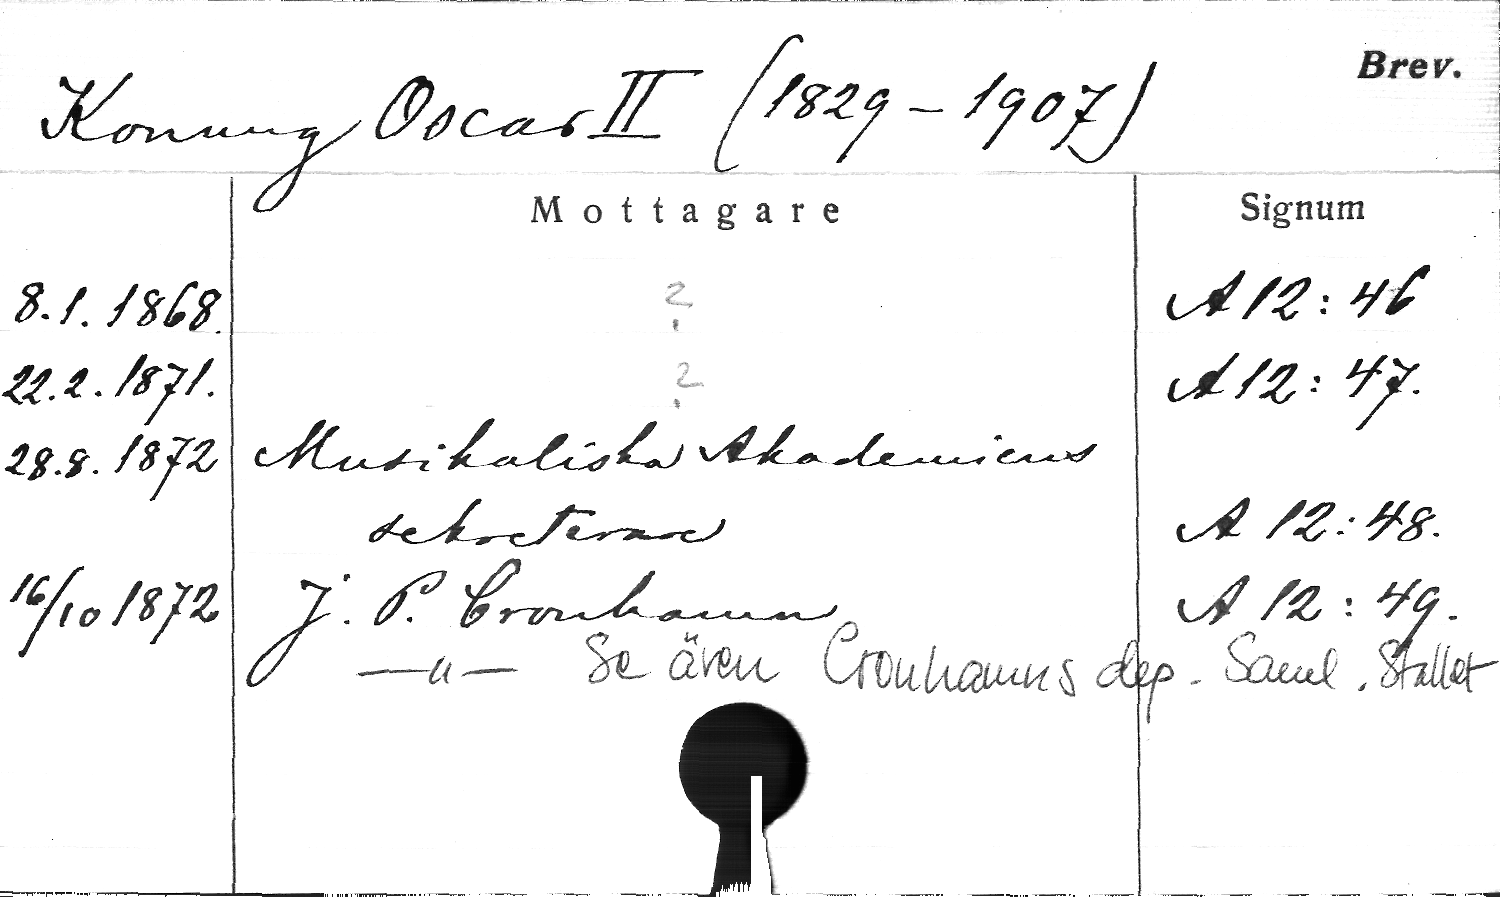 Brev.
Konung Oscar II (1829-1907)
Mottagare Signum
8.1.1868. ? A 12:46
22.2.1871. ? A 12:47.
28.8.1872 Musikaliska Akademiens
sekreterare A 12:48.
16/10 1872 J. P. Cronhamn A 12:49.
—"— Se även Cronhamns dep. Saml. Stallet